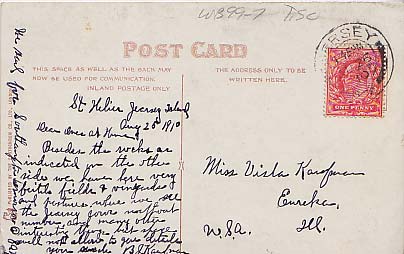 W399-7 HSC
POST CARD
THIS SPACE AS WELL AS THE BACK MAY
NOW BE USED FOR COMMUNICATION.
INLAND POSTAGE ONLY
THE ADDRESS ONLY TO BE
WRITTEN HERE.
JERSEY
ONE PENNY
St Helier Jersey Island
Aug 25 1910
Dear Ones at Home
Besides the rocks as
indicated on the other
side we have here very
fertile fields & vineyards
and pastures where we see
the Jersey cows
numbers and many other
interesting things but space
will not allow to give details
your B. Kaufman
We sail from Southampton
Miss Viola Kaufman
Eureka,
U.S.A. Ill.